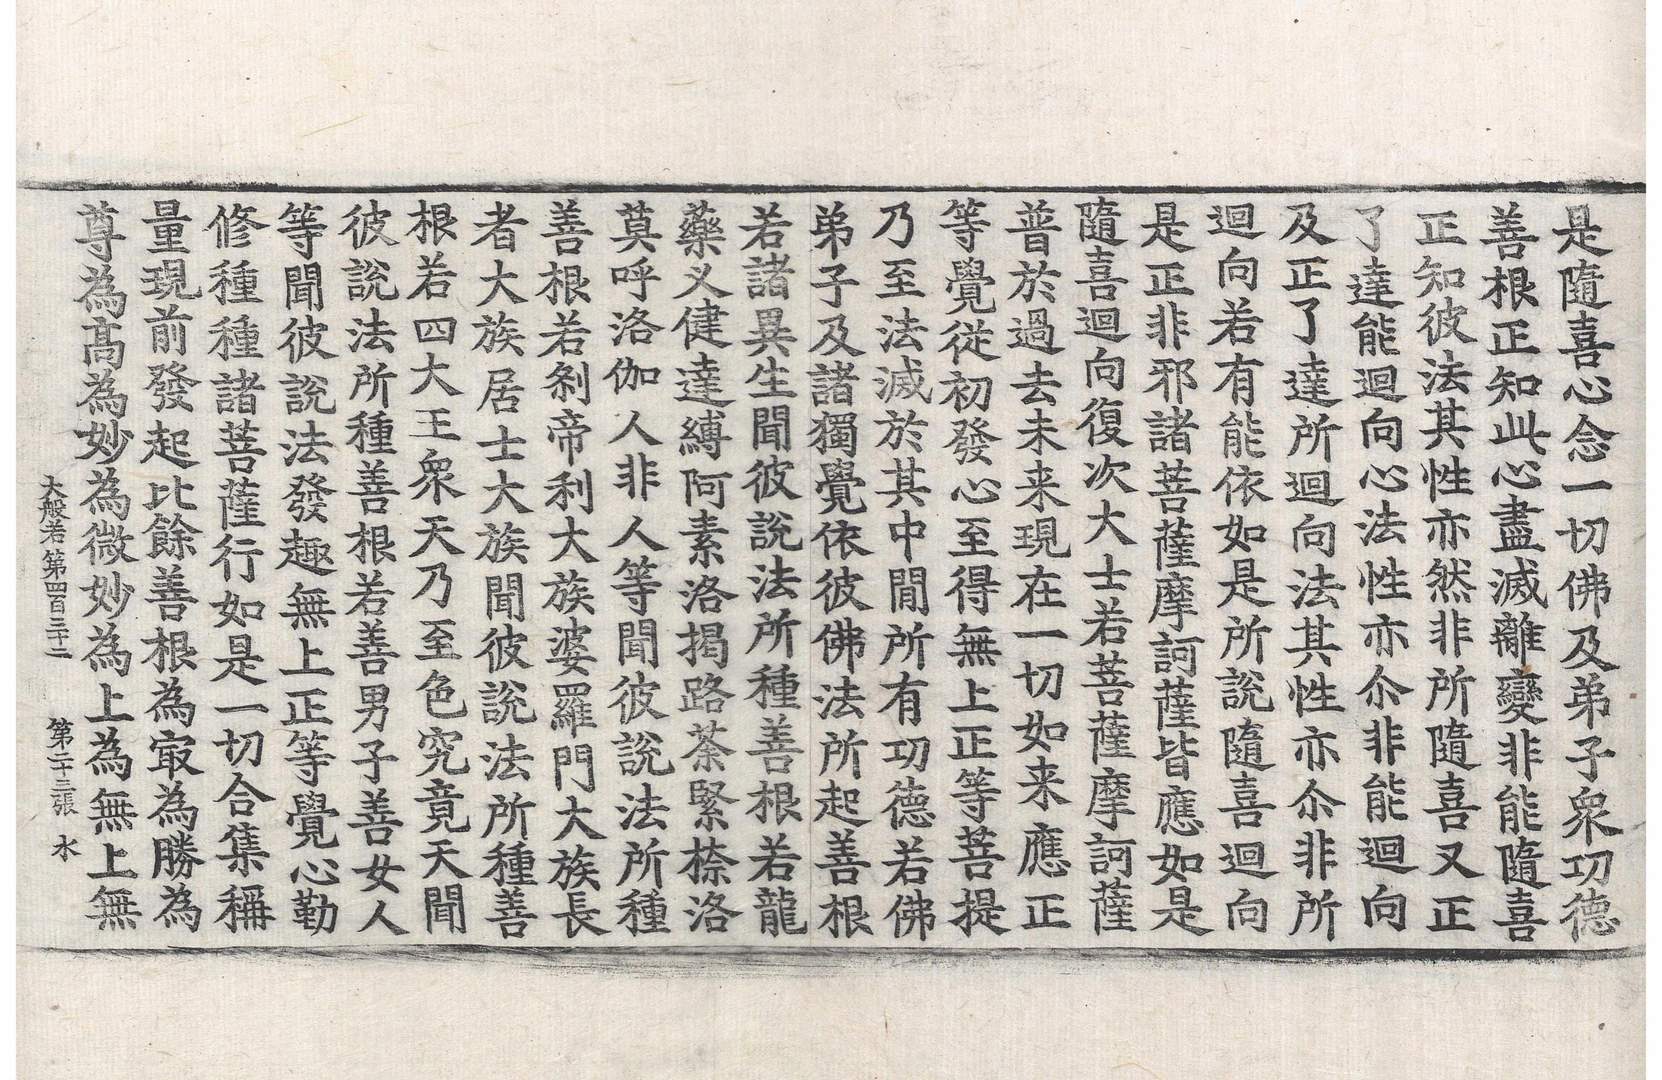 是隨喜心念一切佛及弟子衆功德
善根正知此心盡滅離變非能隨喜
正知彼法其性亦然非所隨喜又正
了達能迴向心法性亦尒非能迴向
及正了達所迴向法其性亦尒非所
迴向若有能依如是所説隨喜迴向
是正非邪諸菩薩摩訶薩皆應如是
隨喜迴向復次大士若菩薩摩訶薩
普於過去未来現在一切如来應正
等覺從初發心至得無上正等菩提
乃至法滅於其中閒所有功德若佛
弟子及諸獨覺依彼佛法所起善根
若諸異生聞彼説法所種善根若龍
藥义健達縛阿素洛揭路荼緊捺洛
莫呼洛伽人非人等聞彼説法所種
善根若刹帝利大族婆羅門大族長
者大族居士大族聞彼説法所種善
根若四大王衆天乃至色究竟天聞
彼説法所種善根若善男子善女人
等聞彼説法發趣無上正等覺心勤
修種種諸菩薩行如是一切合集稱
量現前發起比餘善根為㝡為勝為
尊為髙為妙為微妙為上為無上無
大般若第四百三十二 第二十三張 水